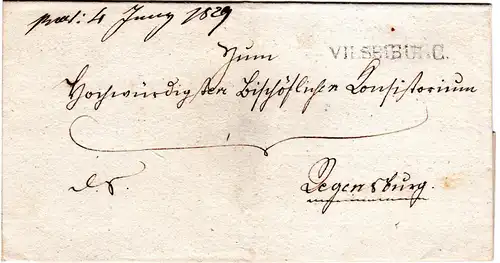 praes: 4 Juny 1829
Zum
VILSBIBURG.
Hochwürdigsten Bischöflichen Konsistorium
d. s. Regensburg.